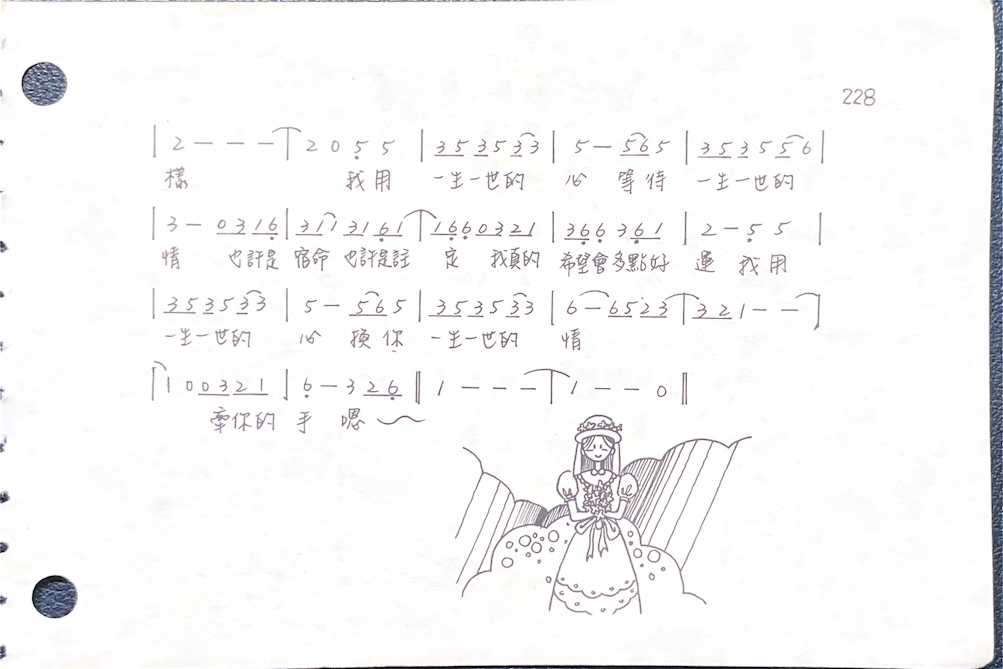 228
| 2 - - - | 2 0 5 5 | 3 5 3 5 3 3 | 5 - 5 6 5 | 3 5 3 5 5 6 |
樣 我用 一生一世的 心 等待 一生一世的
| 3 - 0 3 1 6 | 3 1 1 3 1 6 1 | 1 6 6 0 3 2 1 | 3 6 6 3 6 1 | 2 - 5 5 |
情 也許是 宿命 也許是註 定 我真的 希望會多點好 運 我用
| 3 5 3 5 3 3 | 5 - 5 6 5 | 3 5 3 5 3 3 | 6 - 6 5 2 3 | 3 2 1 - - |
一生一世的 心 換你 一生一世的 情
| 1 0 0 3 2 1 | 6 - 3 2 6 ‖ 1 - - - | 1 - - 0 ‖
牽你的 手 嗯～